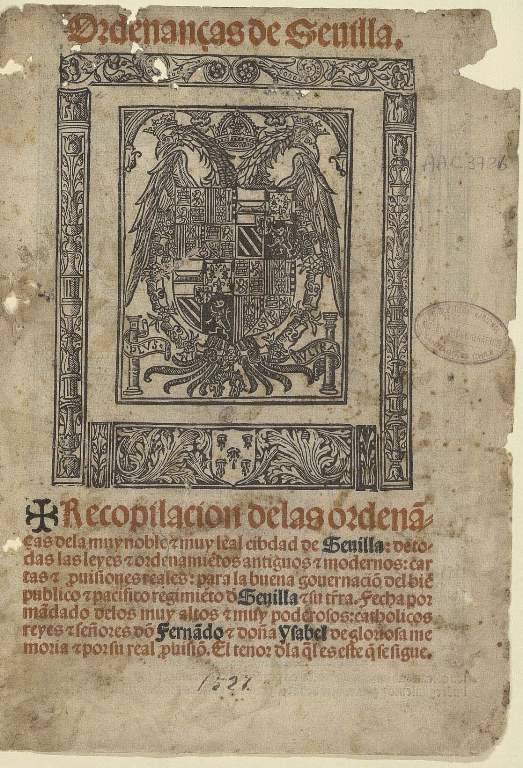 Ordenanças de Seuilla.
AAC3726
PLVS
VLTR
✠ Recopilacion delas ordenã-
ças dela muy noble ⁊ muy leal cibdad de Seuilla: de to-
das las leyes ⁊ ordenamiẽtos antiguos ⁊ modernos: car
tas ⁊ prouisiones reales: para la buena gouernaciõ del biẽ
publico ⁊ pacifico regimiẽto đ Seuilla ⁊ su tr̃ra. Fecha por
mãdado delos muy altos ⁊ muy poderosos: catholicos
reyes ⁊ señores dõ Fernãdo ⁊ doña Ysabel de gloriosa me
moria ⁊ por su real prouisiõ. El tenor đla q̃l es este q̃ se sigue.
1527.